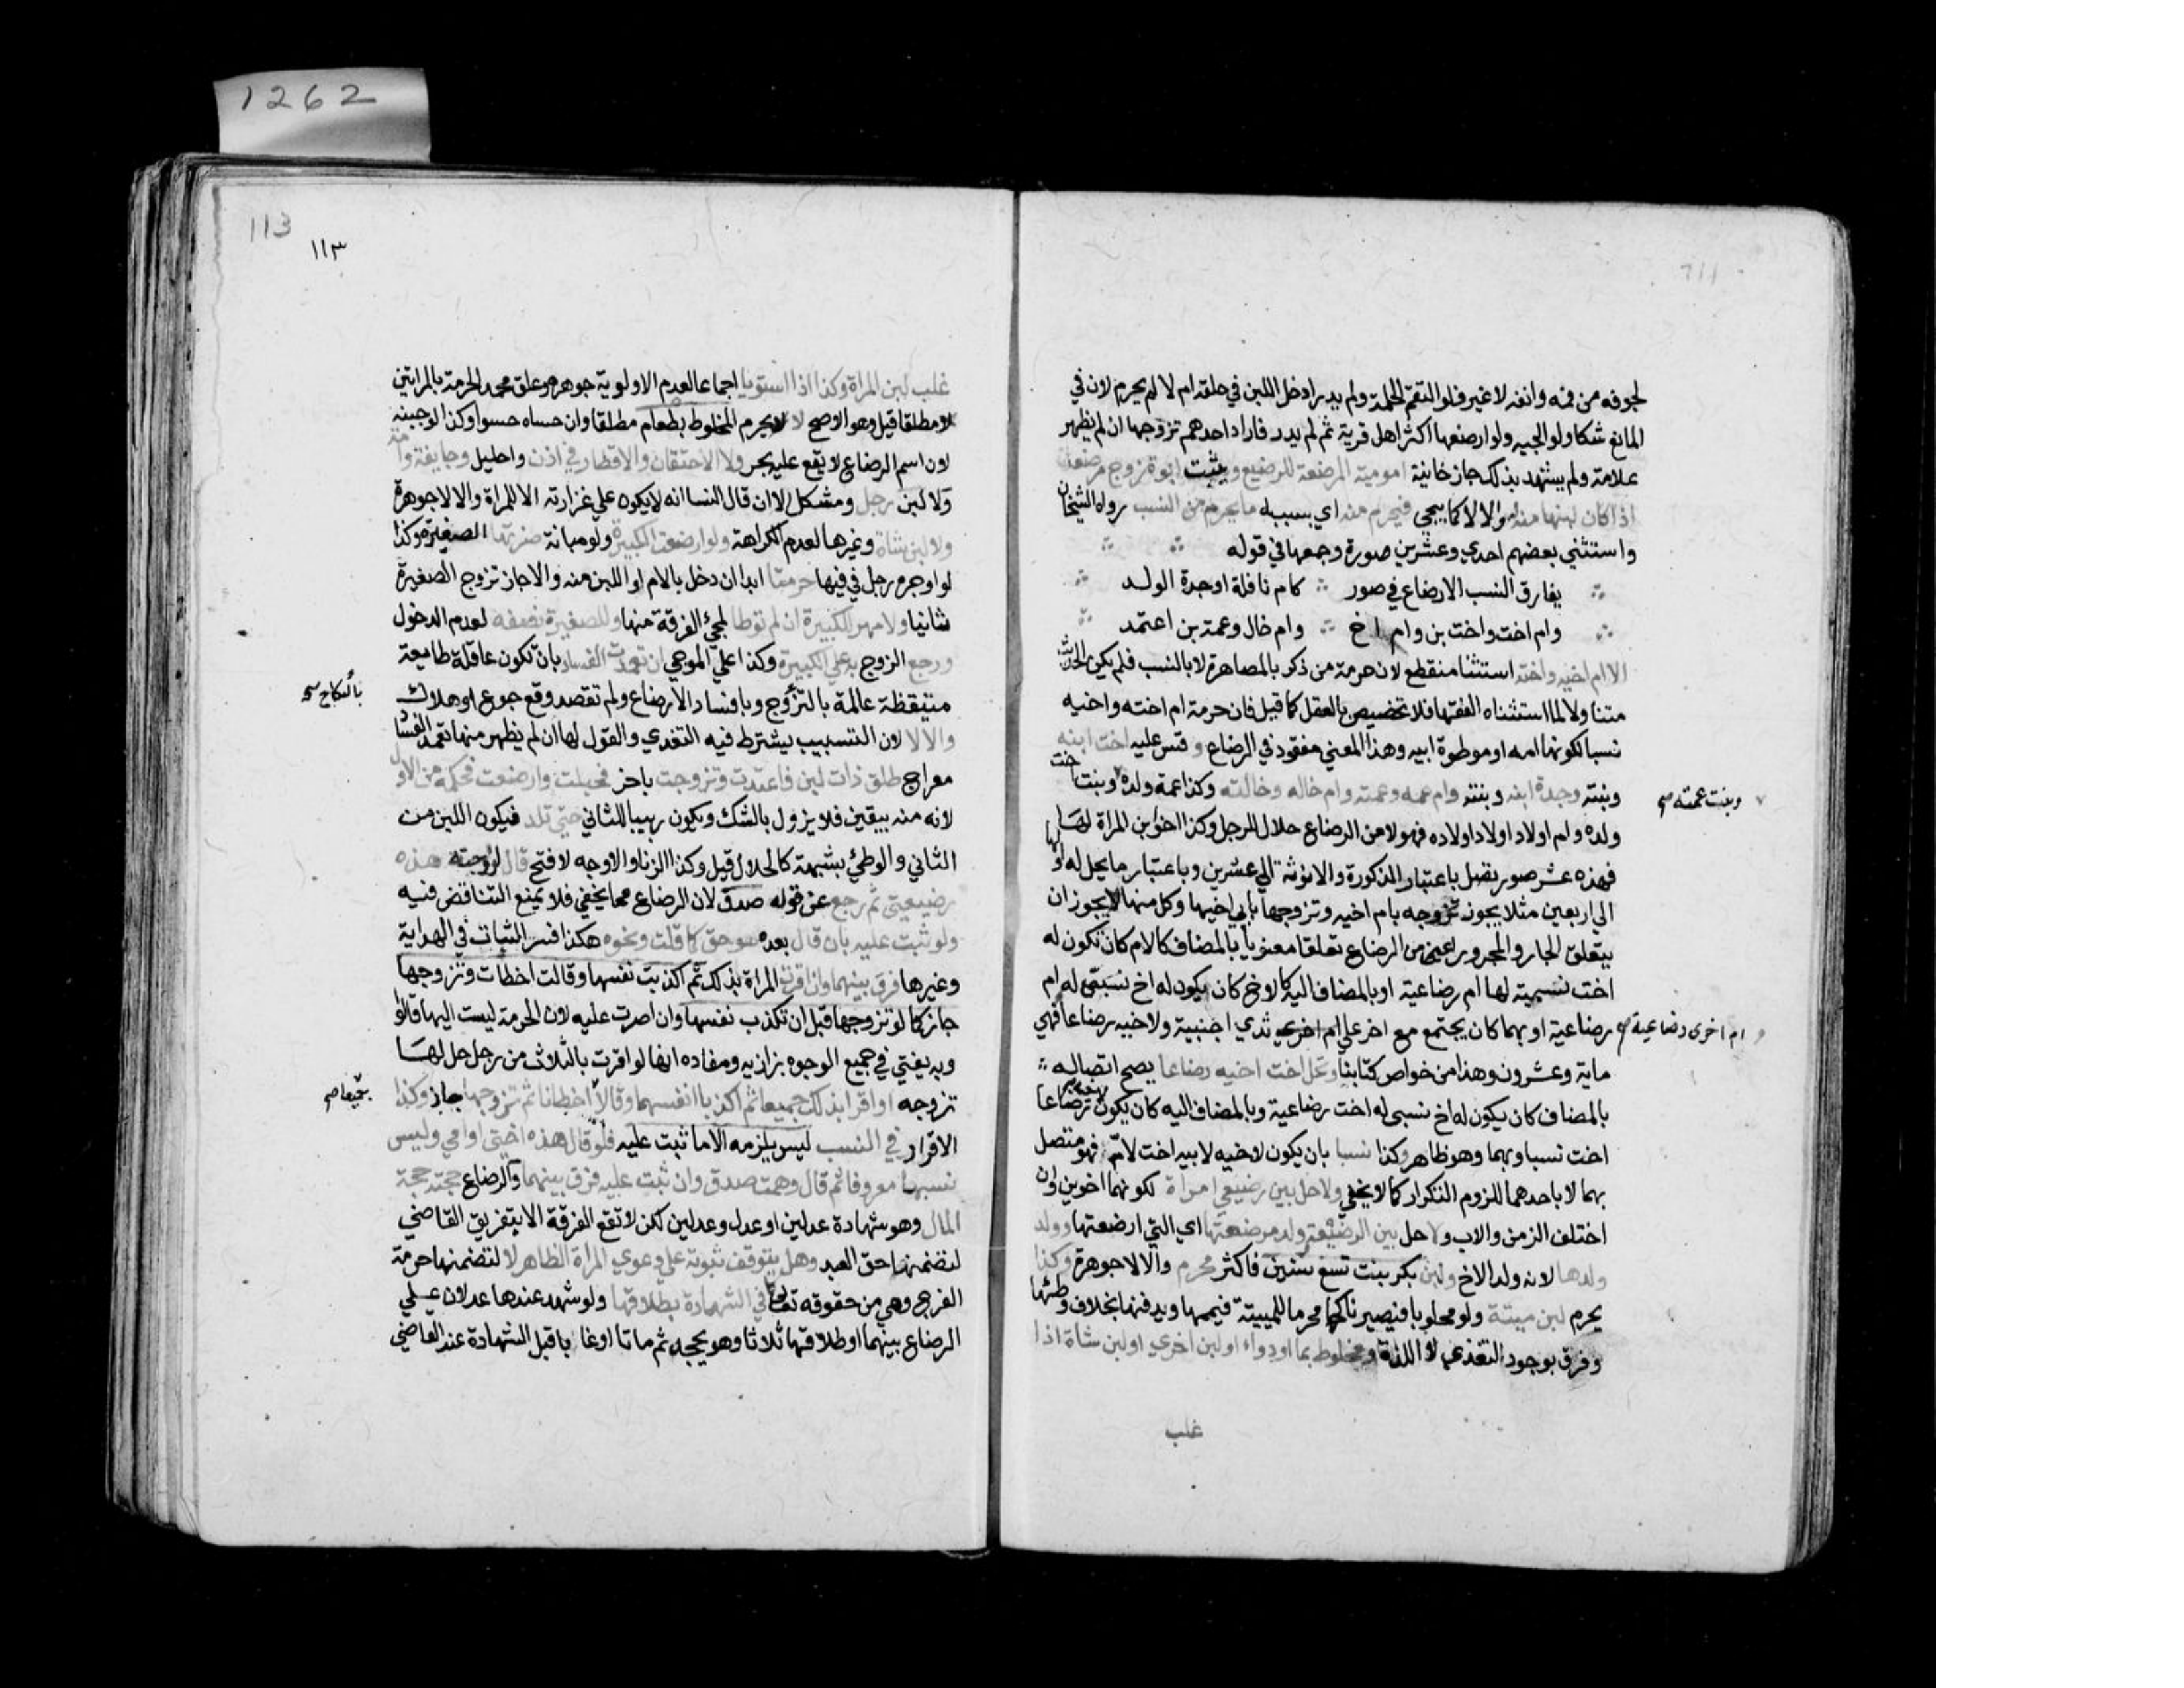 1262
لجوفه من فمه وانفه لا غير فلو التقم الحلمة ولم يدر ادخل اللبن في حلقه ام لا لم يحرم لان في
المانع شكا ولو الجيه ولو ارضعها اكثر اهل قرية ثم لم يدر فاراد احدهم تزوجها ان لم يظهر
علامة ولم يشهد بذلك جاز خانية امومية المرضعة للرضيع ويثبت ابوة زوج مرضعة
اذا كان لبنها منه والا لا كما يجي فيحرم منه اي بسببه ما يحرم من النسب رواه الشيخان
واستثني بعضهم احدي وعشرين صورة وجمعها في قوله
يفارق النسب الارضاع في صور كام نافلة او جدة الولد
وام اخت واخت بن وام اخ وام خال وعمة بن اعتمد
الا ام اخيه واخته استثنا منقطع لان حرمة من ذكر بالمصاهرة لا بالنسب فلم يكن الحديث
متناولا لما استثناه الفقها فلا تخصيص بالعقل كما قيل فان حرمة ام اخته واخيه
نسبا لكونها امه او موطوة ابيه وهذا المعني مفقود في الرضاع وقس عليه اخت ابنه
وبنته وجدة ابنه وبنته وام عمه وعمته وام خاله وخالته وكذا عمة ولده وبنت اخت
وبنت عمته صح
ولده وام اولاد اولاد اولاده فهولا من الرضاع حلال للرجل وكذا اخو ابن المراة لها
فهذه عشر صور تصل باعتبار الذكورة والانوثة الي عشرين وباعتبار ما يحل له او لها
الي اربعين مثلا يجوز تزوجه بام اخيه وتزوجها بابي اخيها وكل منها لا يجوز ان
يتعلق الجار والمجرور اعني من الرضاع تعلقا معنويا بالمضاف كالام كان تكون له
اخت نسبية لها ام رضاعية او بالمضاف اليه كالاخ كان يكون له اخ نسبي له ام
رضاعية او بهما كان يجتمع مع اخر علي ثدي اجنبية ولاخيه رضاعا فهي
ام اخرى رضاعية صح
ماية وعشرون وهذا من خواص كتابنا وتحل اخت اخيه رضاعا يصح اتصاله
بالمضاف كان يكون له اخ نسبي له اخت رضاعية وبالمضاف اليه كان يكون لاخيه رضاعا
اخت نسبا وبهما وهو ظاهر وكذا نسبا بان يكون لاخيه لابيه اخت لام فهو متصل
بهما لا باحدهما للزوم التكرار كما لا يخفي ولا حل بين رضيعي امراة لكونهما اخوين وان
اختلف الزمن والاب ولا حل بين الرضيعة وولد مرضعتها اي التي ارضعتها وولد
ولدها لانه ولد الاخ ولبن بكر بنت تسع سنين فاكثر محرم والا لا جوهرة وكذا
يحرم لبن ميتة ولو محلوبا فيصير ناكحها محرما للميتة فييممها ويدفنها بخلاف وطئها
وفرق بوجود التغذي لا اللذة ومخلوط بما او دواء او لبن اخري او لبن شاة اذا
غلب
113
١١٣
غلب لبن المراة وكذا اذا استويا اجماعا لعدم الاولوية جوهرة وعلق محمد الحرمة بالمراتين
مطلقا قيل وهو الاصح لا يحرم المخلوط بطعام مطلقا وان حساه حسوا وكذا لو جبنه
لان اسم الرضاع لا يقع عليه بحر ولا الاحتقان والاقطار في اذن واحليل وجايفة وامة
ولا لبن رجل ومشكل الا ان قال النسا انه لا يكون علي غزارته الا للمراة والا لا جوهرة
ولا لبن شاة وغيرها لعدم الكراهة ولو ارضعت الكبيرة ولو مبانة ضرتها الصغيرة وكذا
لو اوجره رجل في فيها حرمتا ابدا ان دخل بالام او اللبن منه والا جاز تزوج الصغيرة
ثانيا ولا مهر للكبيرة ان لم توطا لمجئ الفرقة منها وللصغيرة نصفه لعدم الدخول
ورجع الزوج به علي الكبيرة وكذا علي الموجر ان تعمدت الفساد بان تكون عاقلة طايعة
متيقظة عالمة بالتزوج وبافساد الارضاع ولم تقصد دفع جوع او هلاك
بالنكاح
والا لا لان التسبب يشترط فيه التعدي والقول لها ان لم يظهر منها تعمد الفساد
معراج طلق ذات لبن فاعتدت وتزوجت باخر فحبلت وارضعت فحكمه من الاول
لانه منه بيقين فلا يزول بالشك ويكون ربيبا للثاني حتي تلد فيكون اللبن من
الثاني والوطئ بشبهة كالحلال قيل وكذا الزنا والاوجه لا فتح قال لزوجته هذه
رضيعتي ثم رجع عن قوله صدق لان الرضاع مما يخفي فلا يمنع التناقض فيه
ولو ثبت عليه بان قال بعده هو حق كما قلت ونحوه هكذا فسر الثبات في الهداية
وغيرها فرق بينهما وان اقرت المراة بذلك ثم اكذبت نفسها وقالت اخطات وتزوجها
جاز كما لو تزوجها قبل ان تكذب نفسها وان اصرت عليه لان الحرمة ليست اليها قالوا
وبه يفتي في جميع الوجوه بزازيه ومفاده انها لو اقرت بالثلاث من رجل حل لها
تزوجه او اقرا بذلك جميعا ثم اكذبا انفسهما وقالا اخطانا ثم تزوجها جاز وكذا
جميعا صح
الاقرار في النسب ليس يلزمه الا ما ثبت عليه فلو قال هذه اختي او امي وليس
نسبها معروفا ثم قال وهمت صدق وان ثبت عليه فرق بينهما والرضاع حجته حجة
المال وهو شهادة عدلين او عدل وعدلين لكن لا تقع الفرقة الا بتفريق القاضي
لتضمنها حق العبد وهل يتوقف ثبوته علي دعوي المراة الظاهر لا لتضمنها حرمة
الفرج وهي من حقوقه تعالي كما في الشهادة بطلاقها ولو شهد عندها عدلان علي
الرضاع بينهما او طلاقها ثلاثا وهو يجحد ثم ماتا او غابا قبل الشهادة عند القاضي